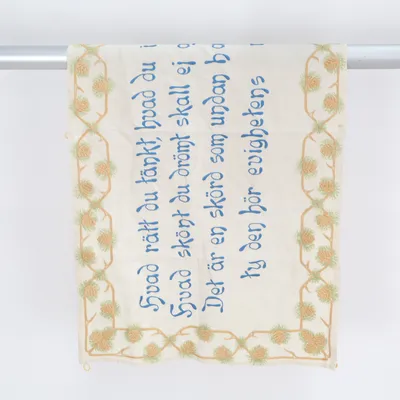 Hvad rätt du tänkt, hvad du i
Hvad skönt du drömt skall ej
Det är en skörd som undan
ty den hör evighetens